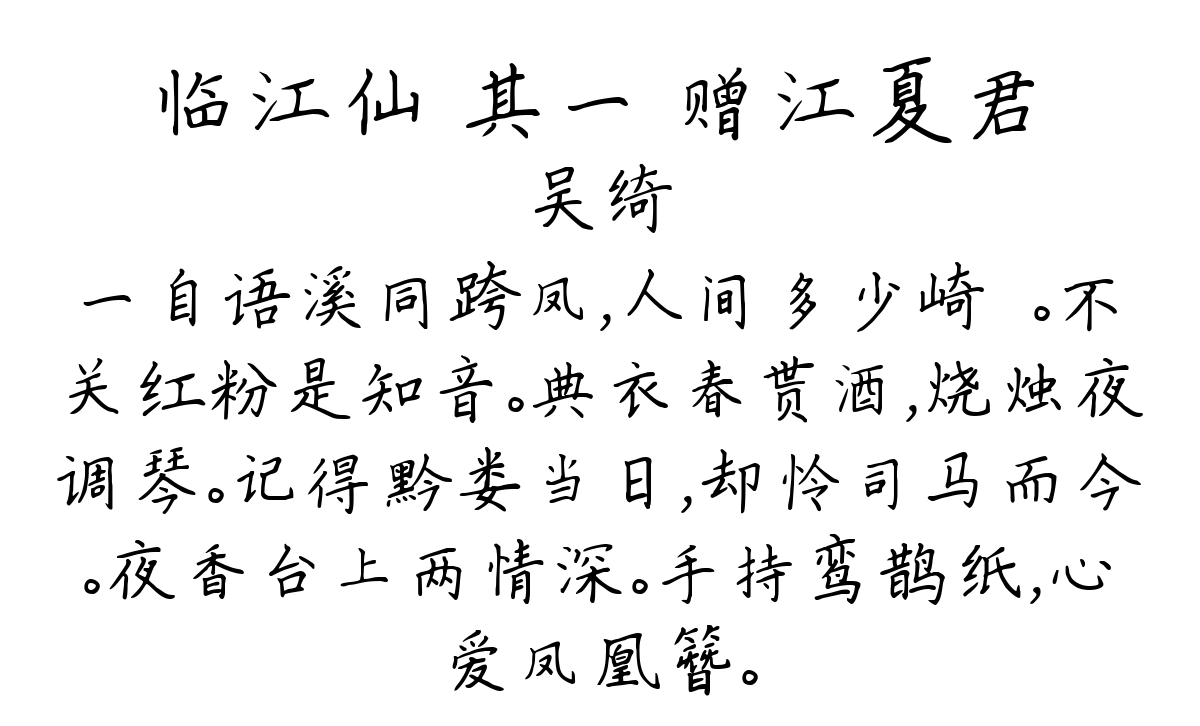 临江仙 其一 赠江夏君
吴绮
一自语溪同跨凤,人间多少崎 。不
关红粉是知音。典衣春贳酒,烧烛夜
调琴。记得黔娄当日,却怜司马而今
。夜香台上两情深。手持鸾鹊纸,心
爱凤凰簪。